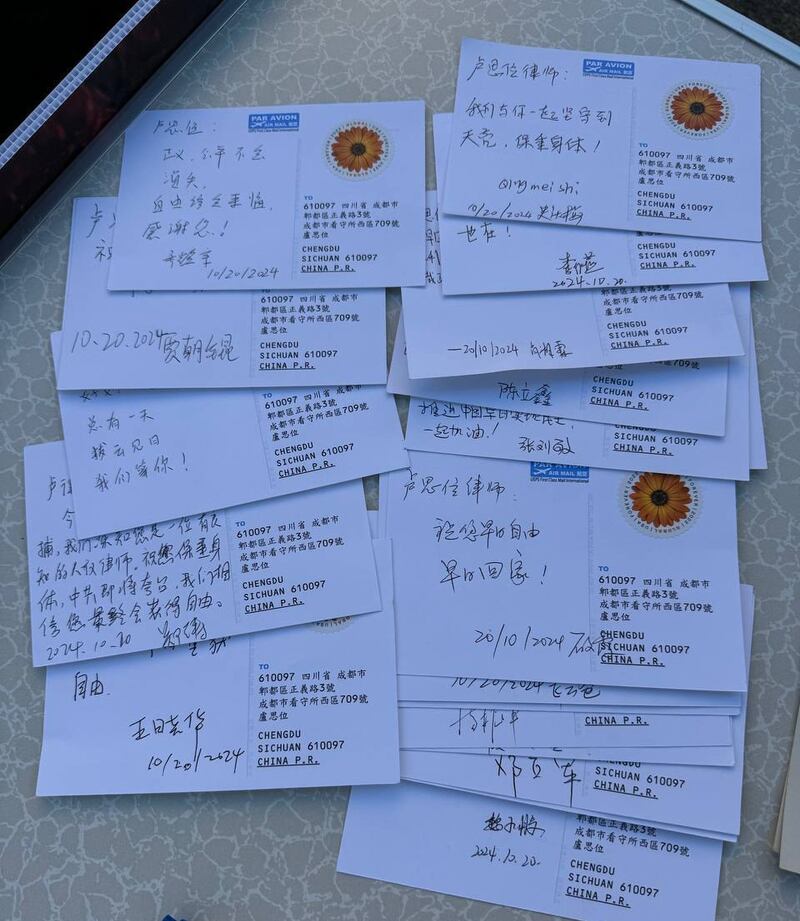 卢思位：
正义、公年不会
消失，
自由终定来临，
感谢您！
10/20/2024
PAR AVION
AIR MAIL 航空
USPS First Class Mail International
TO
610097 四川省 成都市
郫都區正義路3號
成都市看守所西區709號
盧思位
CHENGDU
SICHUAN 610097
CHINA P.R.
10-20.2024
610097 四川省 成都市
郫都區正義路3號
成都市看守所西區709號
盧思位
CHENGDU
SICHUAN 610097
CHINA P.R.
总有一天
拨云见日
我们等你！
TO
610097 四川省 成都市
郫都區正義路3號
成都市看守所西區709號
盧思位
CHENGDU
SICHUAN 610097
CHINA P.R.
捕，我们
知的人权律师。祝您保重身
体，中共即将夸台，我们相
信您最终会获得自由。
2024.10.20
TO
610097 四川省 成都市
郫都區正義路3號
成都市看守所西區709號
盧思位
CHENGDU
SICHUAN 610097
CHINA P.R.
自由.
10/20/2024
TO
610097 四川省 成都市
郫都區正義路3號
成都市看守所西區709號
盧思位
CHENGDU
SICHUAN 610097
CHINA P.R.
卢思位律师：
我们与你一起坚守到
天亮，保重身体！
Qingmei shi
10/20/2024
PAR AVION
AIR MAIL 航空
USPS First Class Mail International
TO
610097 四川省 成都市
郫都區正義路3號
成都市看守所西區709號
盧思位
CHENGDU
SICHUAN 610097
CHINA P.R.
也在！
2024.10.20.
郫都區正義路3號
成都市看守所西區709號
盧思位
CHENGDU
SICHUAN 610097
CHINA P.R.
—20/10/2024
610097 四川省 成都市
郫都區正義路3號
成都市看守所西區709號
盧思位
CHENGDU
SICHUAN 610097
CHINA P.R.
陈立鑫
CHENGDU
SICHUAN 610097
CHINA P.R.
推进中国早日实现民主
一起加油！
张刘敏
CHENGDU
SICHUAN 610097
CHINA P.R.
卢思位律师：
祝您早日自由
早日回家！
20/10/2024
AIR MAIL 航空
USPS First Class Mail International
TO
610097 四川省 成都市
郫都區正義路3號
成都市看守所西區709號
盧思位
CHENGDU
SICHUAN 610097
CHINA P.R.
10/20/2024
CHINA P.R.
CHENGDU
SICHUAN 610097
CHINA P.R.
2024.10.20.
610097 四川省 成都市
郫都區正義路3號
成都市看守所西區709號
盧思位
CHENGDU
SICHUAN 610097
CHINA P.R.